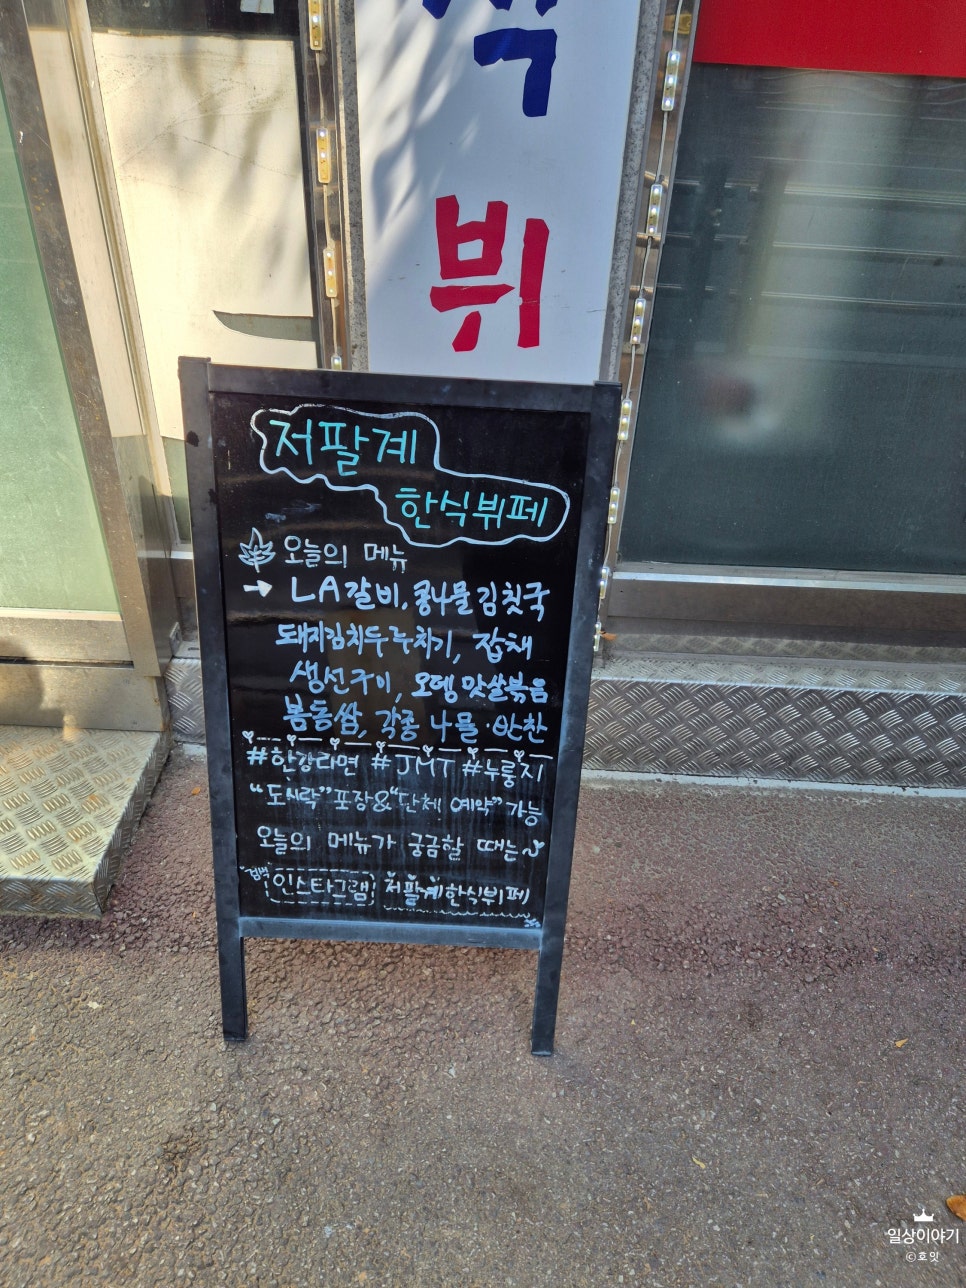 식
뷔
저팔계
한식뷔페
오늘의 메뉴
→ LA갈비, 콩나물김칫국
돼지김치두루치기, 잡채
생선구이, 오뎅맛살볶음
봄동쌈, 각종 나물·반찬
#한강라면 #JMT #누룽지
"도시락"포장&"단체 예약" 가능
오늘의 메뉴가 궁금할 때는~
검색 인스타그램 저팔계한식뷔페
일상이야기
©호잇